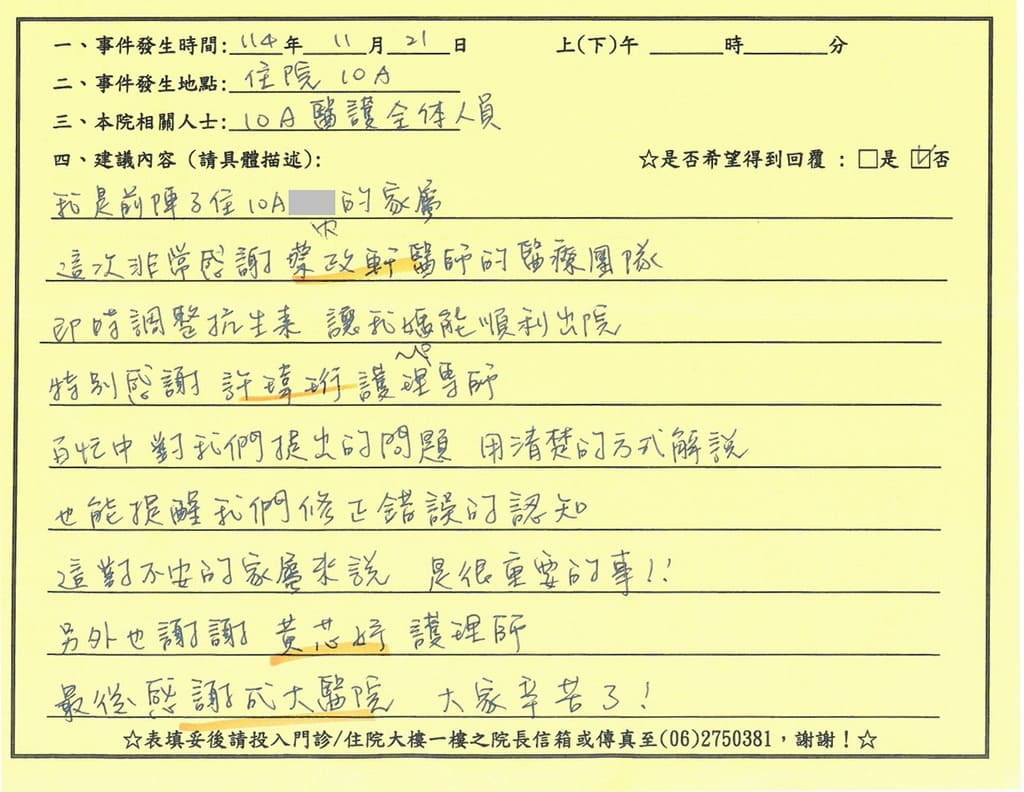 一、事件發生時間:114年11月21日 上(下)午 ______時______分
二、事件發生地點:住院 10A
三、本院相關人士:10A醫護全体人員
四、建議內容(請具體描述): ☆是否希望得到回覆:□是 ☑否
我是前陣子住10A 的家屬
這次非常感謝 蔡政軒醫師的醫療團隊
即時調整抗生素 讓我媽能順利出院
特別感謝 許瑋珩 護理專師
百忙中 對我們提出的問題 用清楚的方式解說
也能提醒我們修正錯誤的認知
這對不安的家屬來說 是很重要的事!!
另外也謝謝 黃芯婷 護理師
最後感謝成大醫院 大家辛苦了!
☆表填妥後請投入門診/住院大樓一樓之院長信箱或傳真至(06)2750381,謝謝!☆